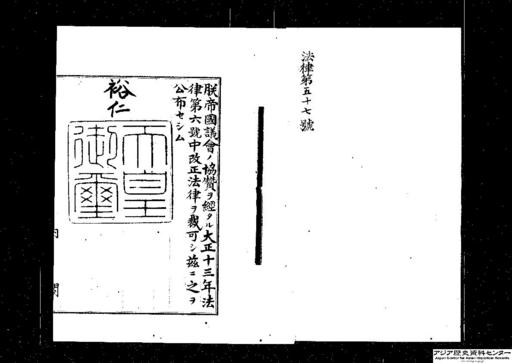 法律第五十七號
朕帝國議會ノ協贊ヲ經タル大正十三年法
律第六號中改正法律ヲ裁可シ茲ニ之ヲ
公布セシム
裕仁
天皇
御璽
内閣
アジア歴史資料センター
Japan Center for Asian Historical Records